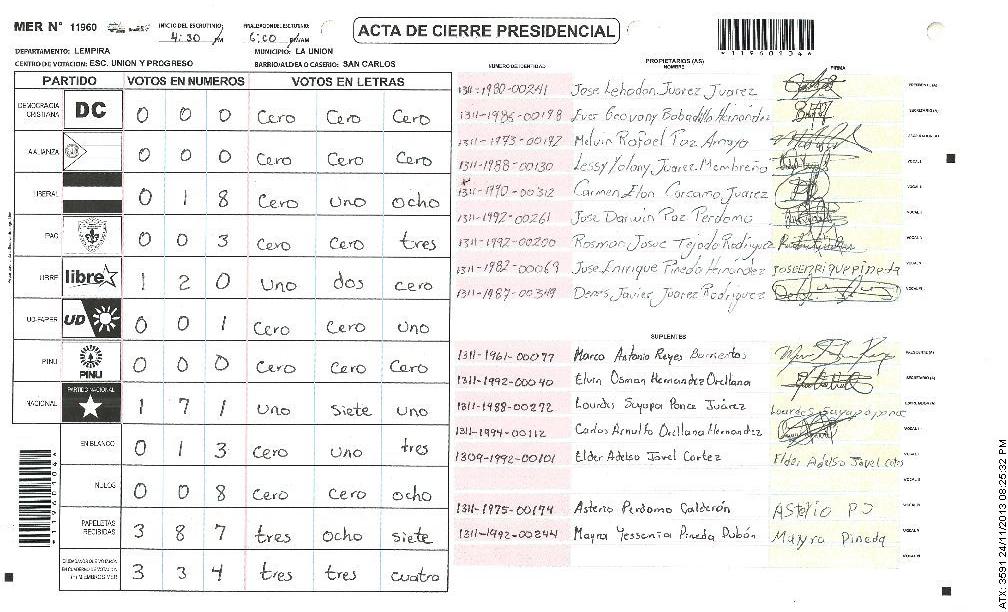 MER N° 11960 INICIO DEL ESCRUTINIO: 4:30 FINALIZACION DEL ESCRUTINIO: 6:00 PM/AM ACTA DE CIERRE PRESIDENCIAL *1196034*
DEPARTAMENTO: LEMPIRA MUNICIPIO: LA UNION
CENTRO DE VOTACION: ESC. UNION Y PROGRESO BARRIO/ALDEA O CASERIO: SAN CARLOS
PARTIDO VOTOS EN NUMEROS VOTOS EN LETRAS
DEMOCRACIA CRISTIANA DC 0 0 0 Cero Cero Cero
AALIANZA 0 0 0 Cero Cero Cero
LIBERAL 0 1 8 Cero uno ocho
PAC 0 0 3 Cero Cero tres
LIBRE libre 1 2 0 uno dos cero
UD-FAPER UD 0 0 1 Cero Cero uno
PINU PINU 0 0 0 Cero Cero Cero
NACIONAL PARTIDO NACIONAL 1 7 1 uno siete uno
EN BLANCO 0 1 3 Cero uno tres
NULOS 0 0 8 Cero Cero ocho
PAPELETAS RECIBIDAS 3 8 7 tres ocho siete
3 3 4 tres tres cuatro
PROPIETARIOS (AS)
NUMERO DE IDENTIDAD NOMBRE FIRMA
1311-1980-00241 Jose Lehodan Juarez Juarez
1311-1986-00198 Ever Geovany Bobadilla Hernández
1311-1973-00192 Melvin Rafael Paz Amaya
1311-1988-00130 Lessy Yolany Juarez Membreño
1311-1990-00312 Carmen Elan Carcamo Juarez
1311-1992-00261 Jose Darwin Paz Perdomo
1311-1992-00200 Rosman Josue Tejada Rodriguez
1311-1982-00069 Jose Enrique Pineda Hernandez JOSE ENRIQUE Pineda
1311-1987-00349 Denis Javier Juarez Rodriguez
SUPLENTES
1311-1961-00077 Marco Antonio Reyes Barrientos
1311-1992-00040 Elvin Osman Hernandez Orellana
1311-1988-00272 Lourdes Suyapa Ponce Juárez Lourdes Suyapa ponce
1311-1994-00112 Carlos Arnulfo Orellana Hernandez
1309-1992-00101 Elder Adelso Javel Cortez Elder Adelso Javel Cortez
1311-1975-00174 Asterio Perdomo Calderón Asterio PJ
1311-1992-00244 Mayra Yessenia Pineda Dubón Mayra Pineda
ATX: 3591 24/11/2013 08:25:32 PM